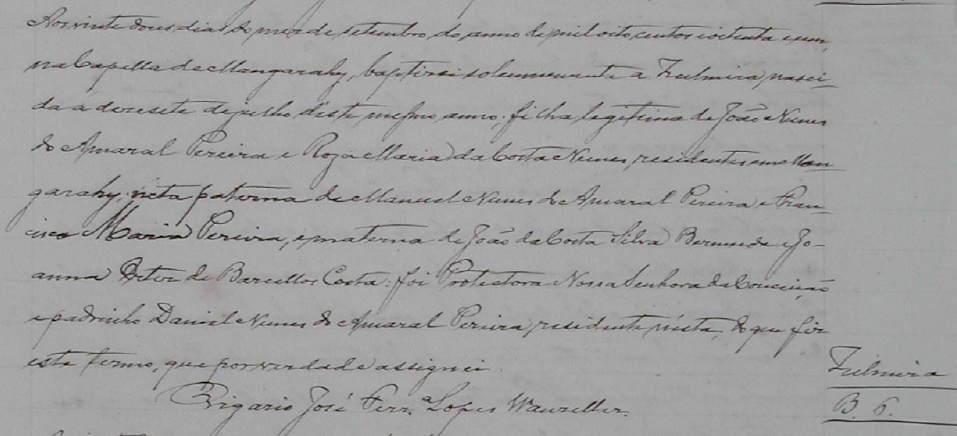 Aos vinte dous dias do mez de setembro do anno de mil oito centos e oitenta e um,
na Capella de Mangarahy, baptisei solemnemente a Zulmira, nasci-
da a desesete de julho deste mesmo anno, filha legitima de João Nunes
do Amaral Pereira e Roza Maria da Costa Nunes, residentes em Man-
garahy; neta paterna de Manuel Nunes do Amaral Pereira e Fran-
cisca Maria Pereira, e materna de João da Costa Silva e Jo-
anna de Barcellos Costa: foi Protectora Nossa Senhora da Conceição
e padrinho Daniel Nunes do Amaral Pereira, residente nesta, do que fiz
este termo, que por verdade assignei.
Vigario José Ferr.ª Lopes
Zulmira
B. 6.